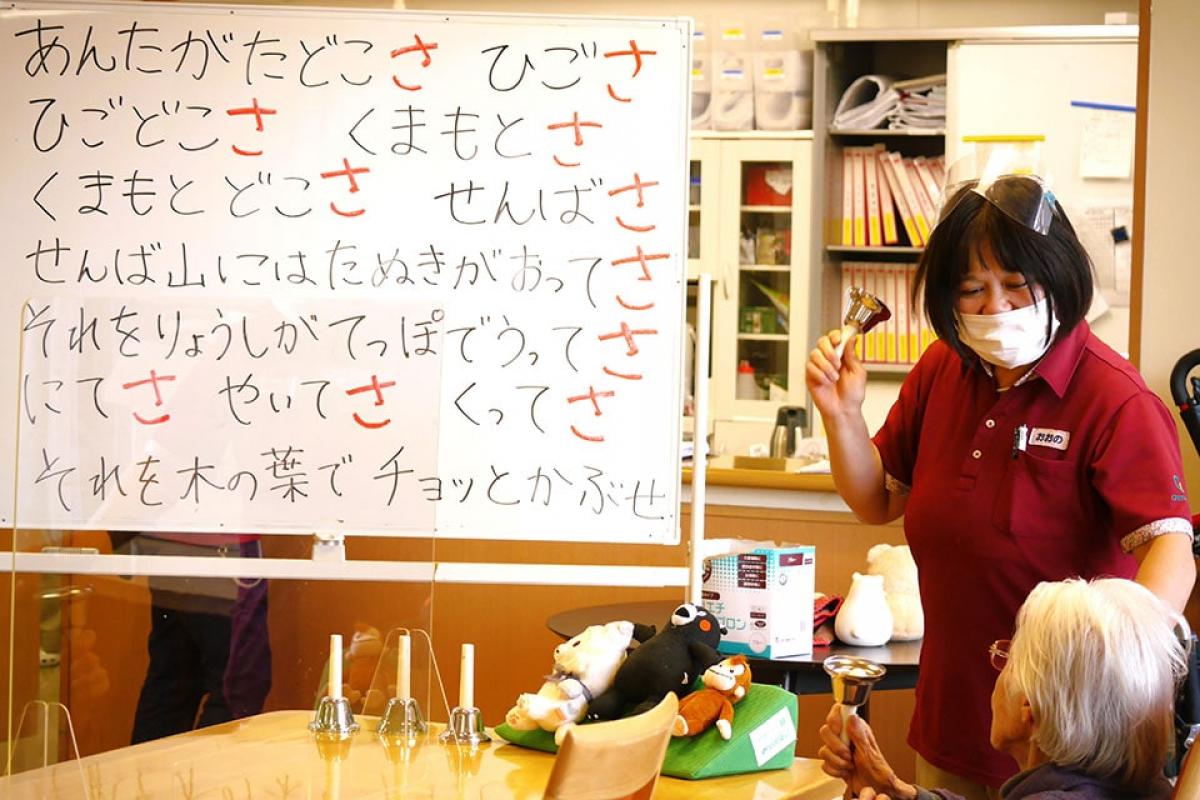 あんたがたどこさ ひごさ
ひごどこさ くまもとさ
くまもとどこさ せんばさ
せんば山にはたぬきがおってさ
それをりょうしがてっぽでうってさ
にてさ やいてさ くってさ
それを木の葉でチョッとかぶせ
おおの